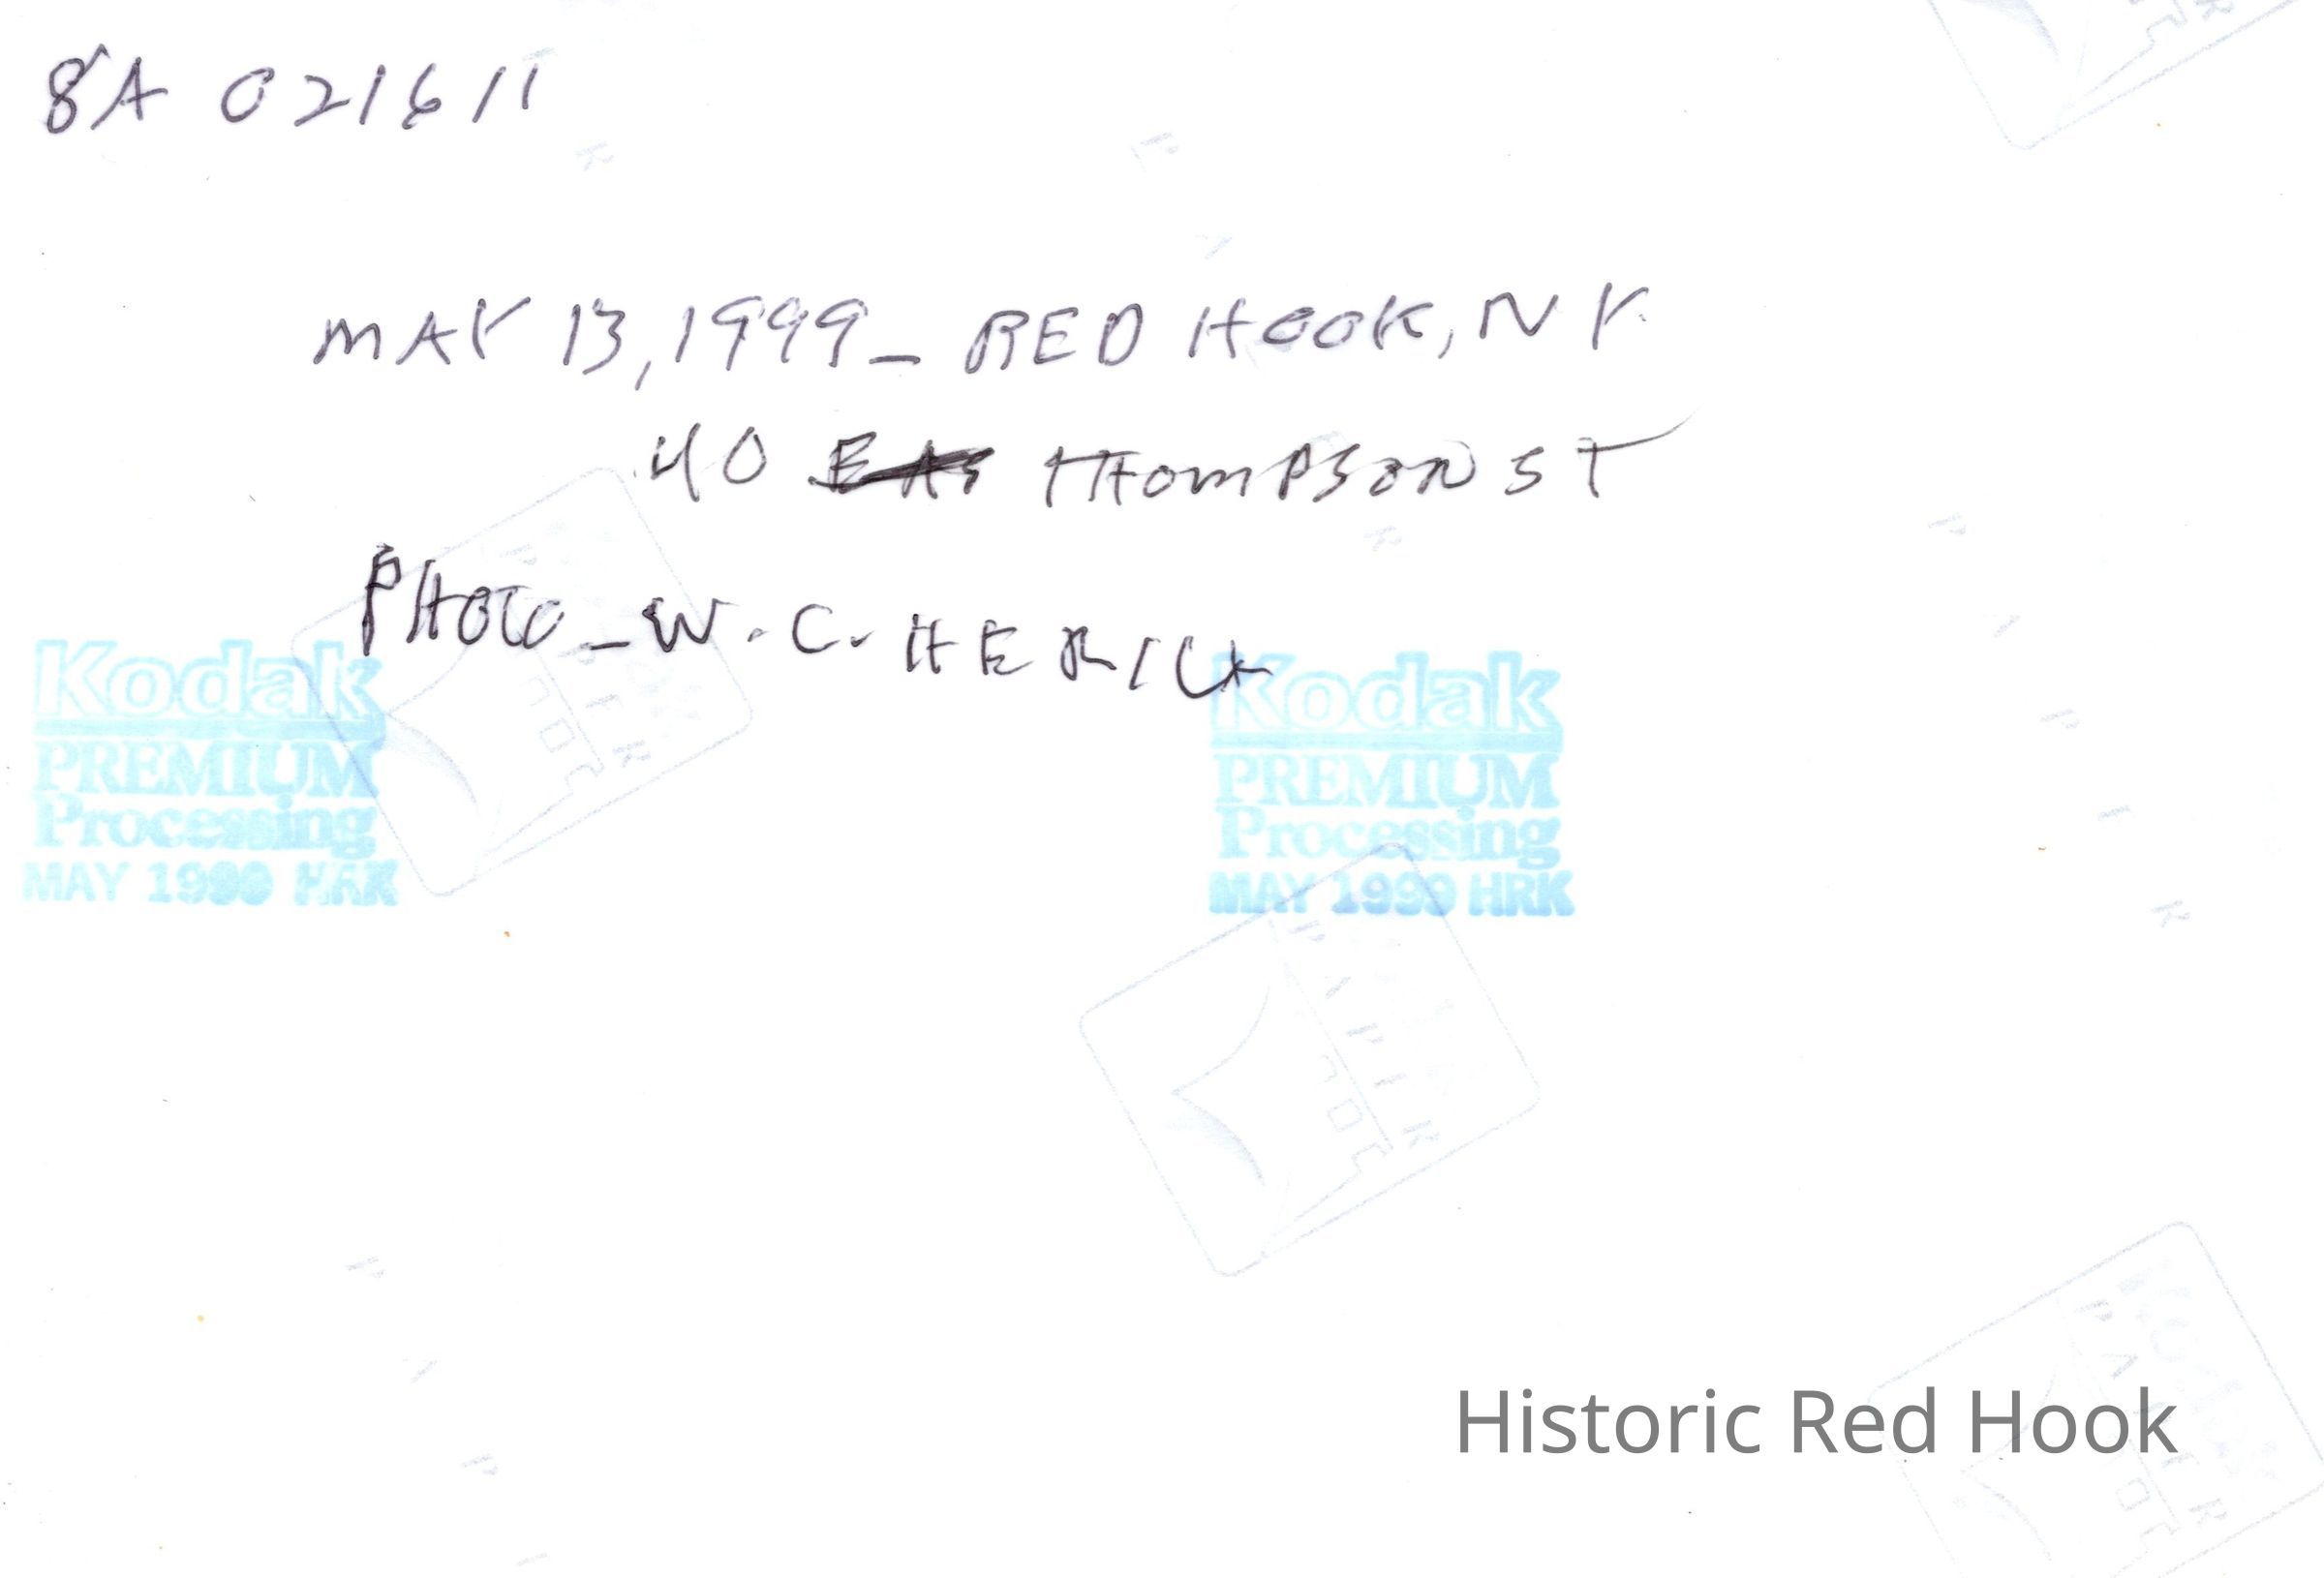 8A 021611
MAY 13, 1999 _ RED HOOK, N Y.
40 EAS THOMPSON ST
PHOTO _ W. C. HERICK
Kodak
PREMIUM
Processing
MAY 1999 HRK
Kodak
PREMIUM
Processing
MAY 1999 HRK
Historic Red Hook